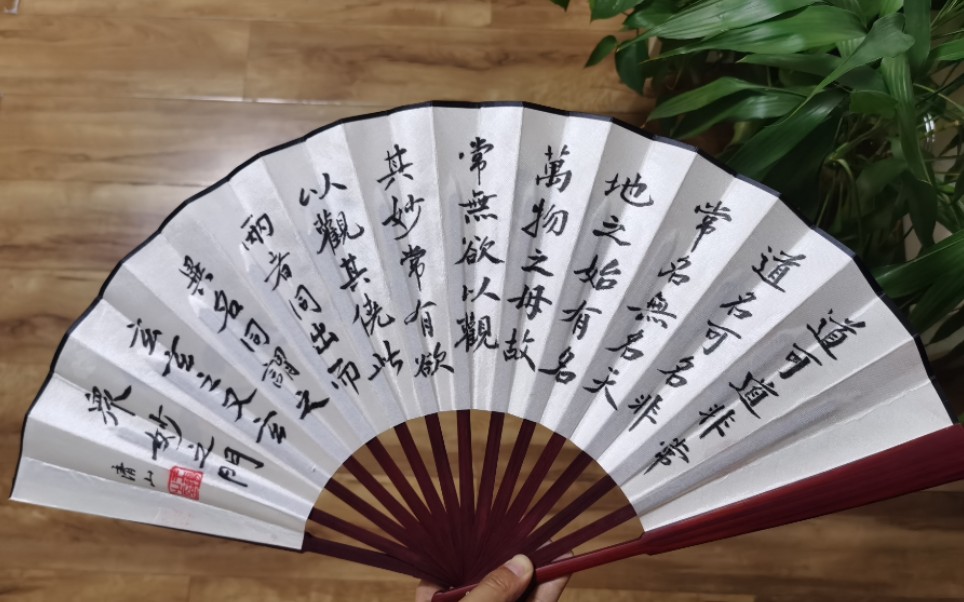 道可道非常
道名可名非
常名無名天
地之始有名
萬物之母故
常無欲以觀
其妙常有欲
以觀其徼此
兩者同出而
異名同謂之
玄玄之又玄
眾妙之門
清山